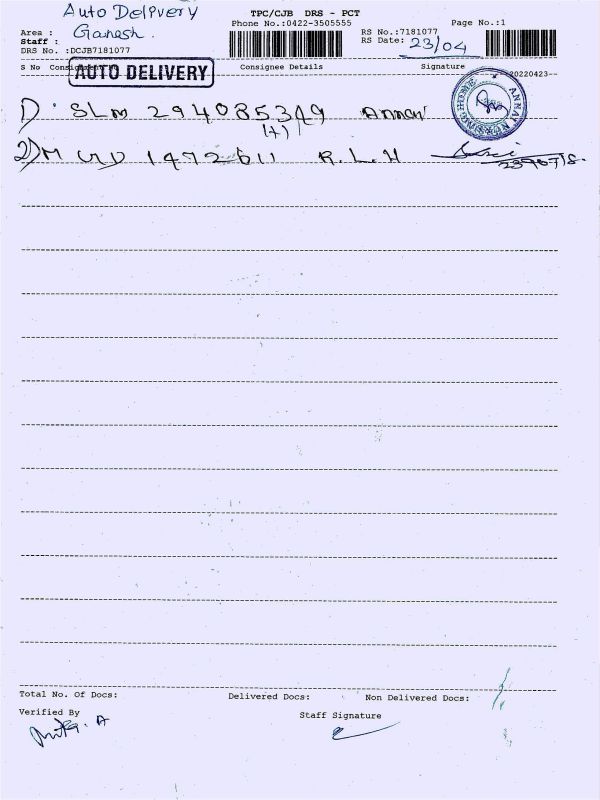 Auto Delivery
TPC/CJB DRS - PCT
Phone No.:0422-3505555
Page No.:1
Area : Ganesh.
RS No.:7181077
Staff :
RS Date: 23/04
DRS No. :DCJB7181077
S No Consignment No Consignee Details Signature
20220423-
AUTO DELIVERY
ANNAI NURSING HOME
1) SLM 294085319 Annai
(A)
2) MUD 1472611 R.L.H
Total No. Of Docs: Delivered Docs: Non Delivered Docs:
Verified By
Staff Signature